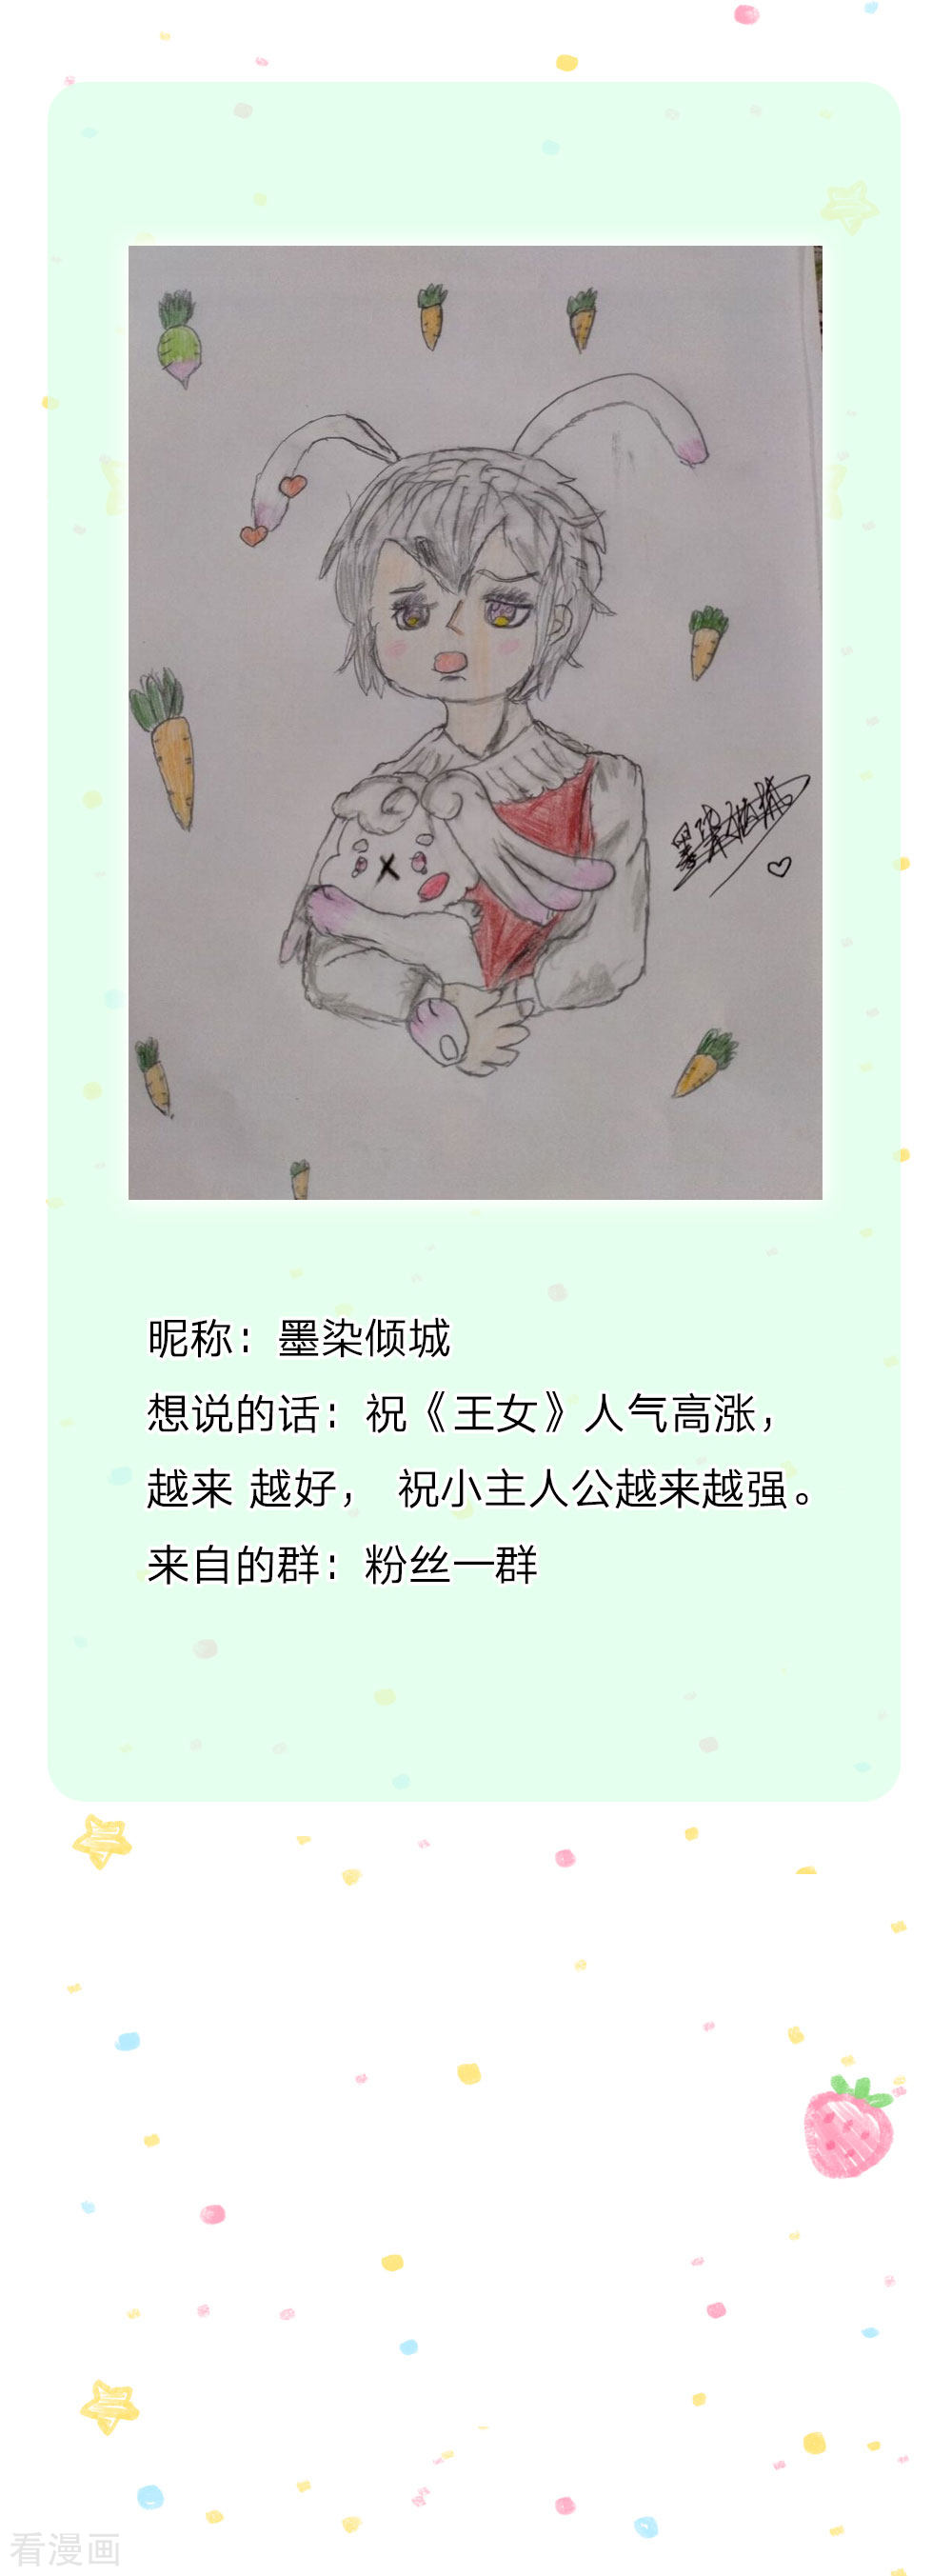 昵称：墨染倾城
想说的话：祝《王女》人气高涨，
越来 越好， 祝小主人公越来越强。
来自的群：粉丝一群
看漫画